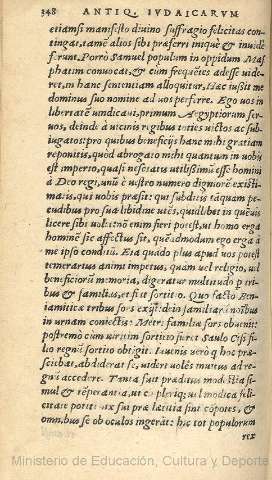 348 ANTIQ. IVDAICARVM
etiamsi manifesto divino suffragio felicitas con
tingat, tamē alios sibi præferri iniquè & invidè
ferunt. Porrò Samuel populum in oppidum Mas
phatim convocat, & cum frequētes adesse vide
ret, in hanc sententiam alloquitur. Hæc iussit me
dominus suo nomine ad vos perferre. Ego vos in
libertatē vindicavi, primum Aegyptiorum ser
vos, deinde à vicinis regibus toties victos ac sub
iugatos: pro quibus beneficijs hanc mihi gratiam
reponitis, quòd abrogato mihi quantum in vobis
est imperio, quasi nesciatis utilissimū esse homini
à Deo regi, unū è vestro numero digniorē existi
matis, qui vobis præsit: qui subditis tāquam pe
cudibus pro sua libidine utēs, quidlibet in quēvis
licere sibi volet. nō enim fieri potest, ut homo erga
hominē sic affectus sit, quēadmodum ego erga à
me ipso conditū. Eia quādo plus apud vos potest
temerarius animi impetus, quàm vel religio, vel
beneficiorū memoria, digeratur multitudo p tri
bus & familias, et fiat sortitio. Quo facto Ben-
iamiticæ tribus sors exijt. dein familiarū nōibus
in urnam coniectis, Metri familia sors obvenit:
postremò cum viritim sortitio fieret Saulo Cisi fi
lio regnū sortitio obtigit. Iuvenis verò q hoc præ
sciebat, abdiderat se, videri volēs invitus ad re
gnū accedere. Tanta fuit præditus modestia si-
mul & tēperantia, ut cū pleriq; vel modica feli-
citate potiti vix sui præ lætitia sint cōpotes, &
omnibus se ob oculos ingerāt: hic tot populorum
rex
Ministerio de Educación, Cultura y Deporte